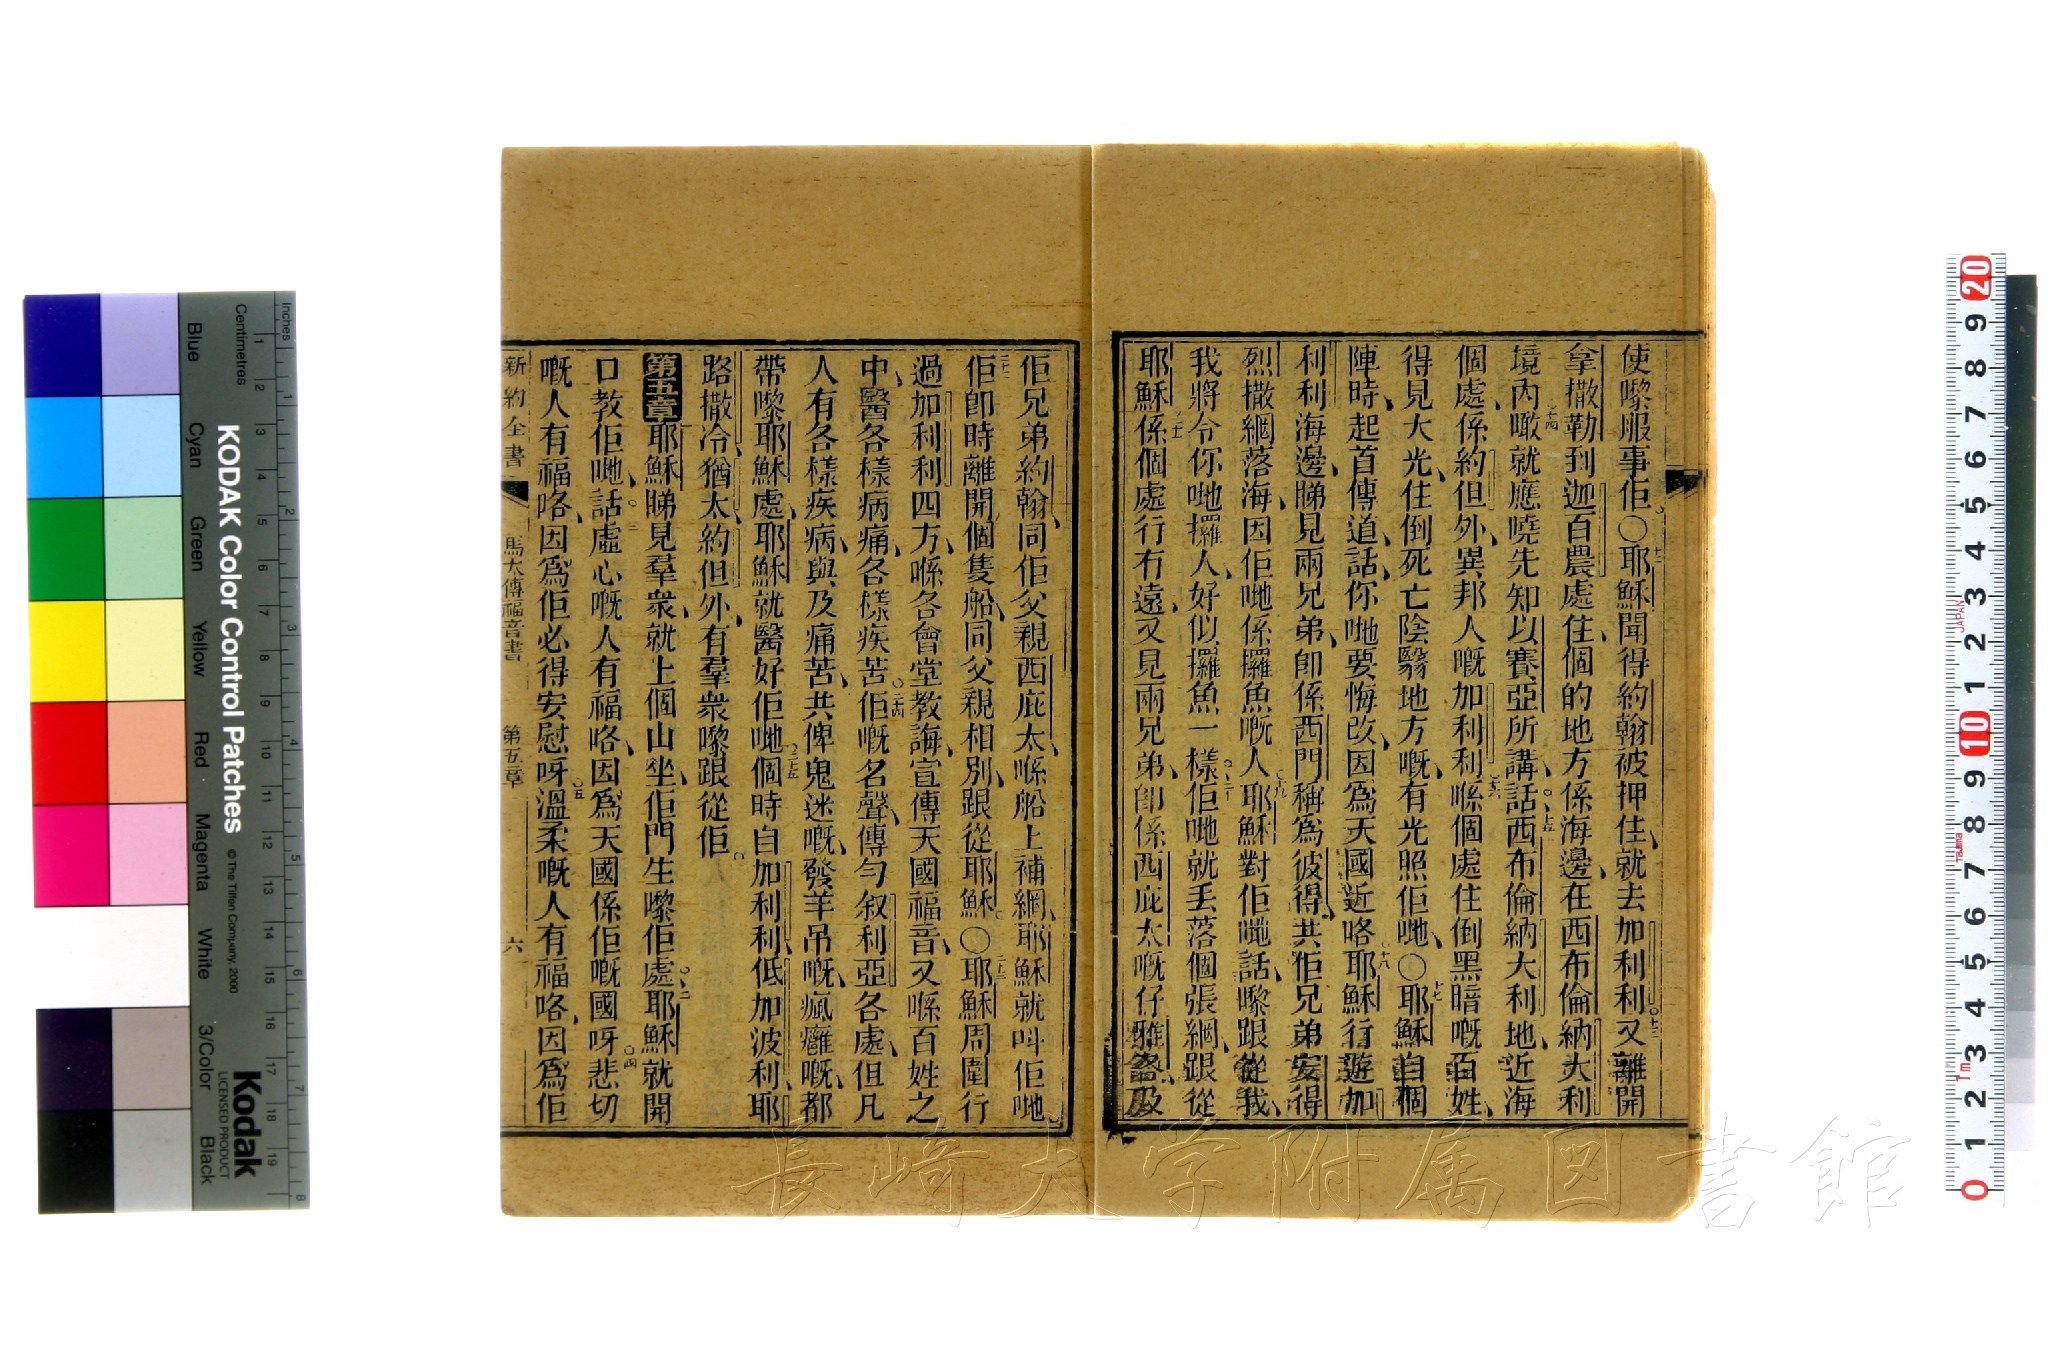 使嚟服事佢○耶穌聞得約翰被押住就去加利利又離開
拿撒勒到迦百農處住個的地方係海邊在西布倫納大利
境內噉就應曉先知以賽亞所講話西布倫納大利地近海
個處係約但外異邦人嘅加利利喺個處住倒黑暗嘅百姓
得見大光住倒死亡陰翳地方嘅有光照佢哋○耶穌自個
陣時起首傳道話你哋要悔改因爲天國近咯耶穌行遊加
利利海邊睇見兩兄弟卽係西門稱爲彼得共佢兄弟安得
烈撒網落海因佢哋係攞魚嘅人耶穌對佢哋話嚟跟從我
我將令你哋攞人好似攞魚一樣佢哋就丟落個張網跟從
耶穌係個處行冇遠又見兩兄弟卽係西庇太嘅仔雅各及
佢兄弟約翰同佢父親西庇太喺船上補網耶穌就呌佢哋
佢卽時離開個隻船同父親相別跟從耶穌○耶穌周圍行
過加利利四方喺各會堂教誨宣傳天國福音又喺百姓之
中醫各樣病痛各樣疾苦佢嘅名聲傳勻叙利亞各處但凡
人有各樣疾病與及痛苦共俾鬼迷嘅發羊吊嘅瘋癱嘅都
帶嚟耶穌處耶穌就醫好佢哋個時自加利利低加波利耶
路撒冷猶太約但外有羣衆嚟跟從佢
第五章耶穌睇見羣衆就上個山坐佢門生嚟佢處耶穌就開
口教佢哋話虛心嘅人有福咯因爲天國係佢嘅國呀悲切
嘅人有福咯因爲佢必得安慰呀溫柔嘅人有福咯因爲佢
新約全書 馬太傳福音書 第五章 六
長崎大学附属図書館
KODAK Color Control Patches
© The Tiffen Company, 2000
Kodak
LICENSED PRODUCT
Inches
Centimetres
Blue Cyan Green Yellow Red Magenta White 3/Color Black